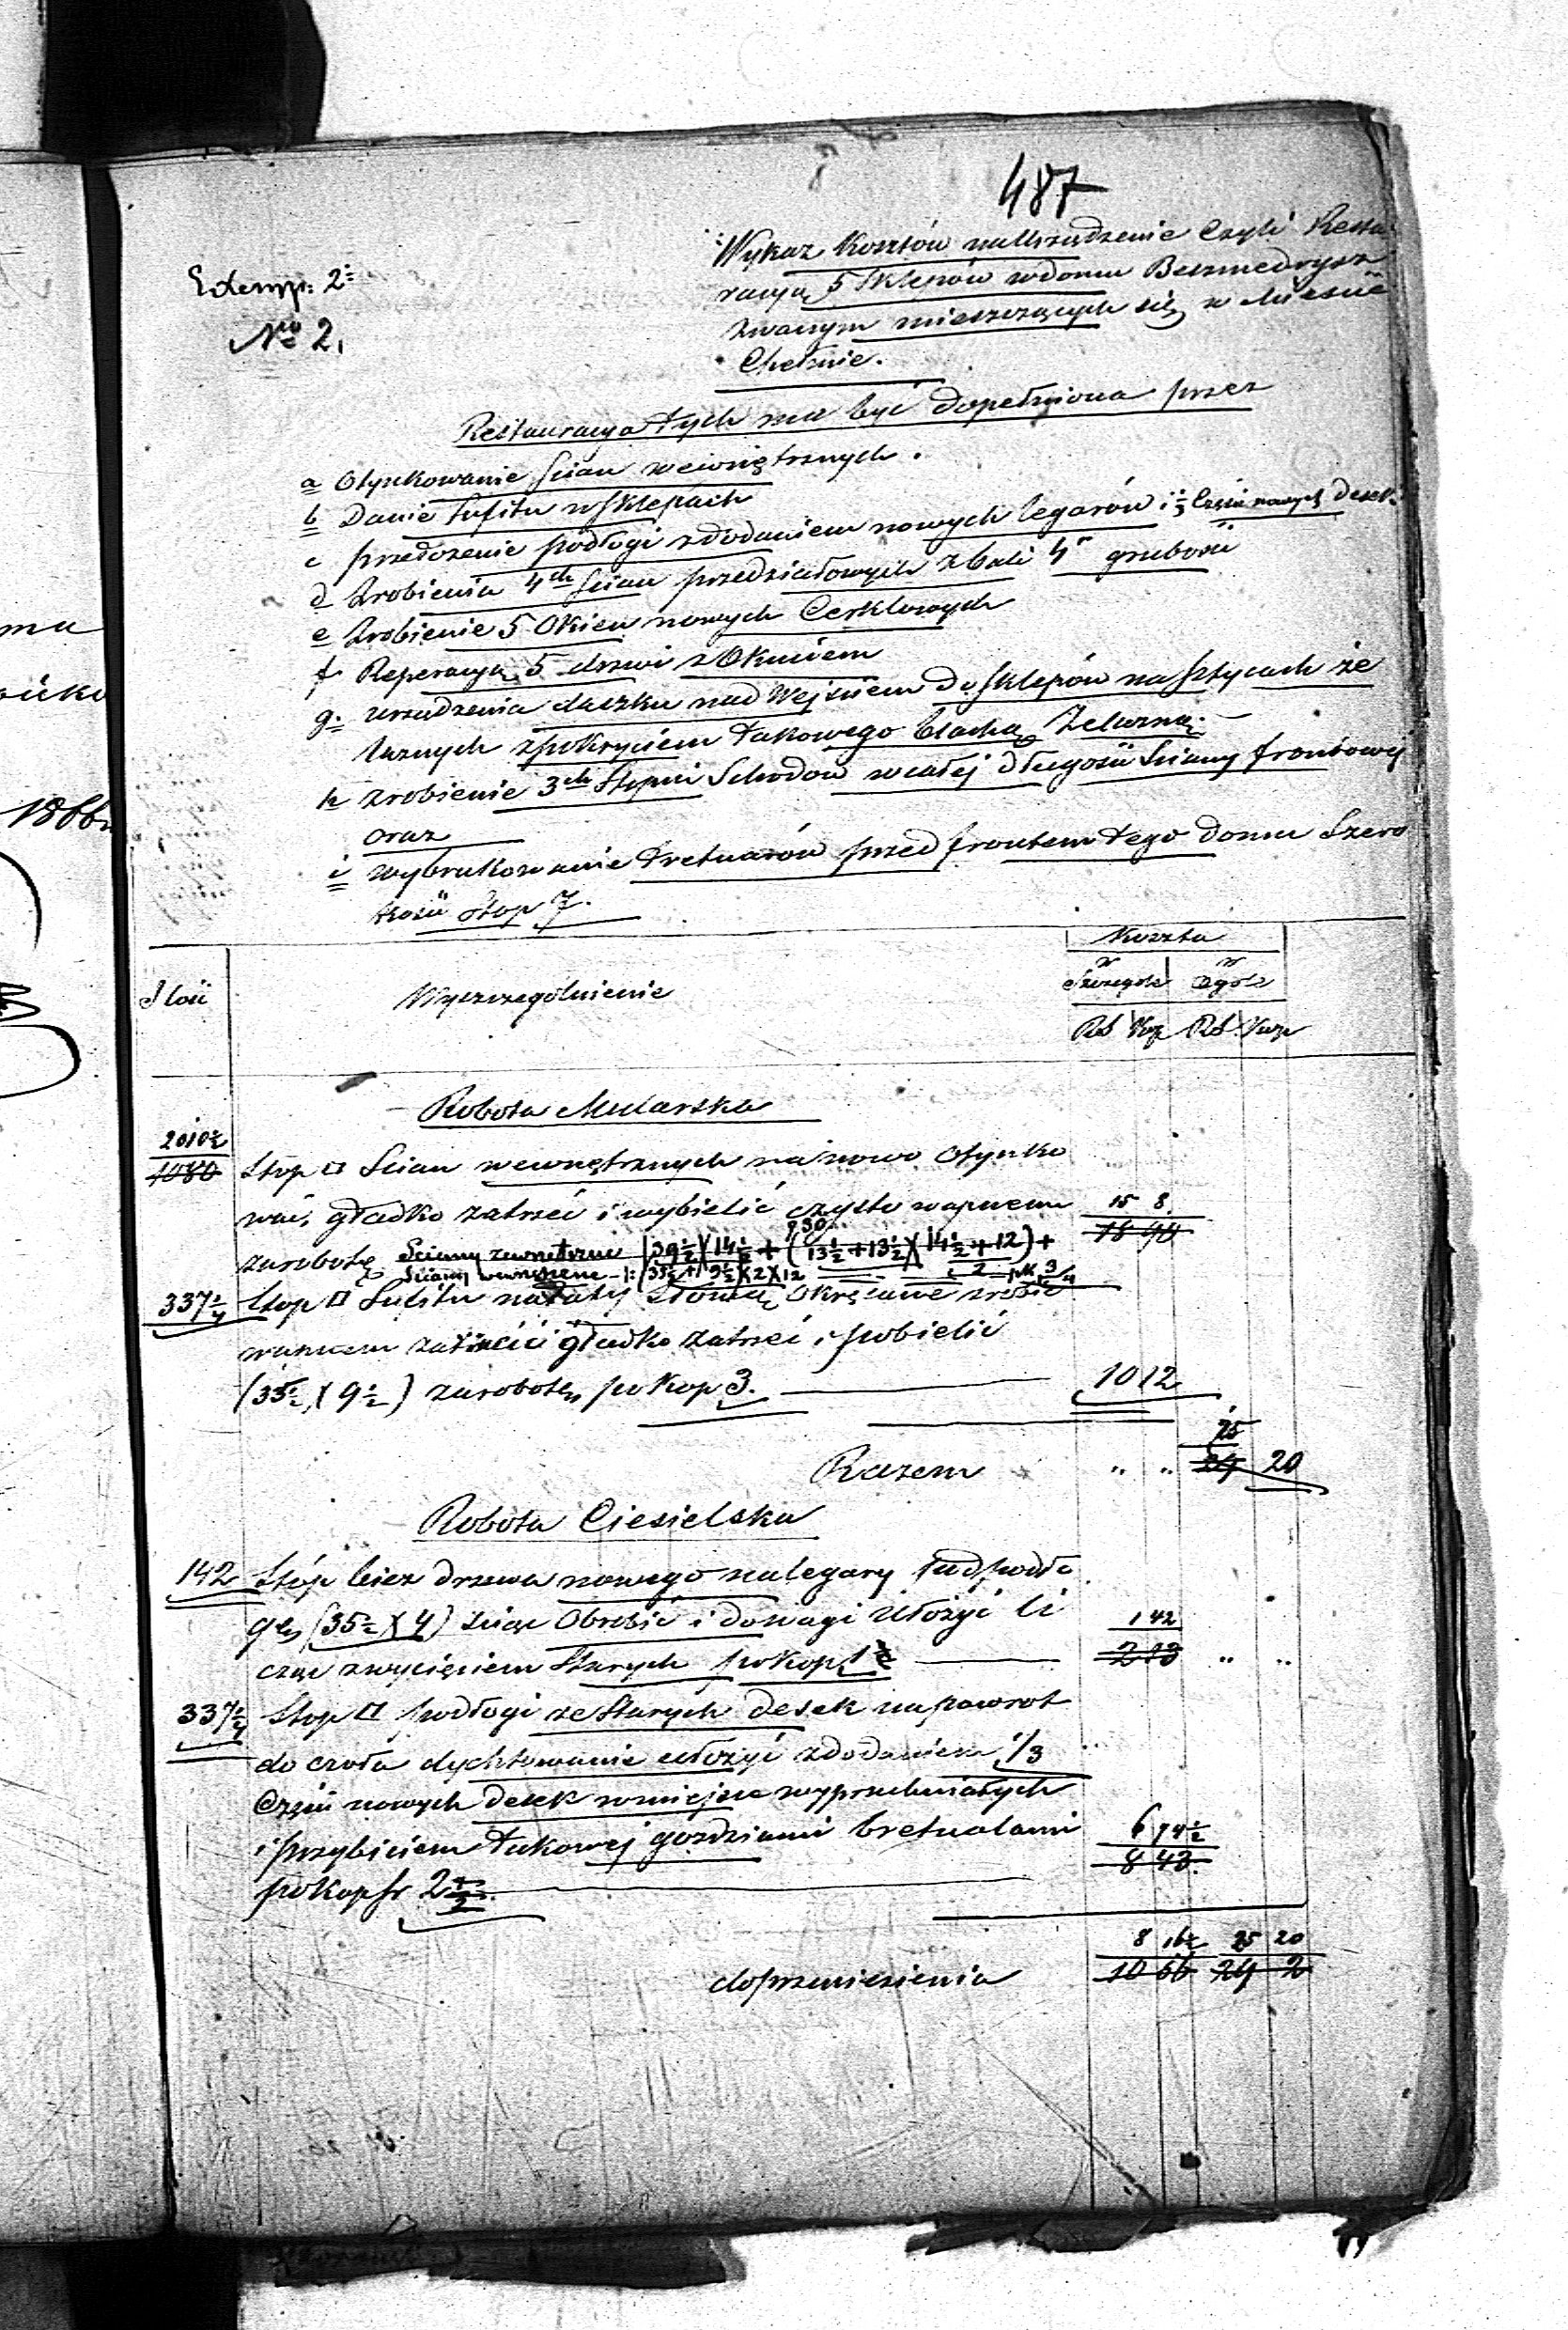 487
Exemp: 2
No 2.
Wykaz Kosztów na Urządzenie czyli Restau
racyą 5 Sklepów w domu Bezmedrysz
zwanym mieszczących się w Mieście
Chełmie.
Restauracya tych ma być dopełniona przez
a Otynkowanie ścian wewnętrznych.
b Danie Sufitu w sklepach
c przełożenie podłogi z dodaniem nowych legarów i ⅓ Części nowych desek
d Zrobienia 4ch ścian przedziałowych z bali 4" grubości
e Zrobienie 5 Okien nowych Cerklowych
f Reperacya 5 drzwi z Okuciem
g. urządzenia daszku nad Wejściem do sklepów na sztycach że
laznych z pokryciem takowego blachą Żelazną.
h zrobienie 3ch Stopni Schodów w całej długości Sciany frontowej
oraz
i wybrukowanie tretuarów przed frontem tego domu Szero
kości Stop 7.
Koszta
Ilość
Wyszczególnienie
w Szczególe
w Ogóle
Rs Kop Rs Kop
Robota Mularska
2010½
1080 Stop □ Scian wewnętrznych na nowo Otynko
wać, gładko zatrzeć i wybielić czysto wapnem 15 8
18 90
za robotę Sciany zewnętrzne (39½)(14½ + (13½+13½)(14½+12)+
Sciany wewnętrzne (35½+9½)×2×12
337¼ Stop □ Sufitu na łaty słomą Okręcane zrobić
wapnem zarzucić gładko zatrzeć i pobielić
(35½ × 9½) za robotę po Kop 3. 10 12
25
Razem " " 29 20
Robota Ciesielska
142 Stóp bież drzewa nowego na legary pod podło
gę (35½ × 4) sciąc Obrobić i do wagi Ułożyć li 1 42
cząc z wyjęciem Starych po kop 1 2 13 " "
337¼ Stop □ podłogi ze Starych desek na powrot
do czoła dychtowanie ułożyć z dodaniem 1/3
Części nowych desek w miejsce wypruchniałych
i przybiciem takowej gozdziami bretnalami 6 74½
8 43
po kop sr 2½
8 16½ 25 20
do przeniesienia 10 56 29 2